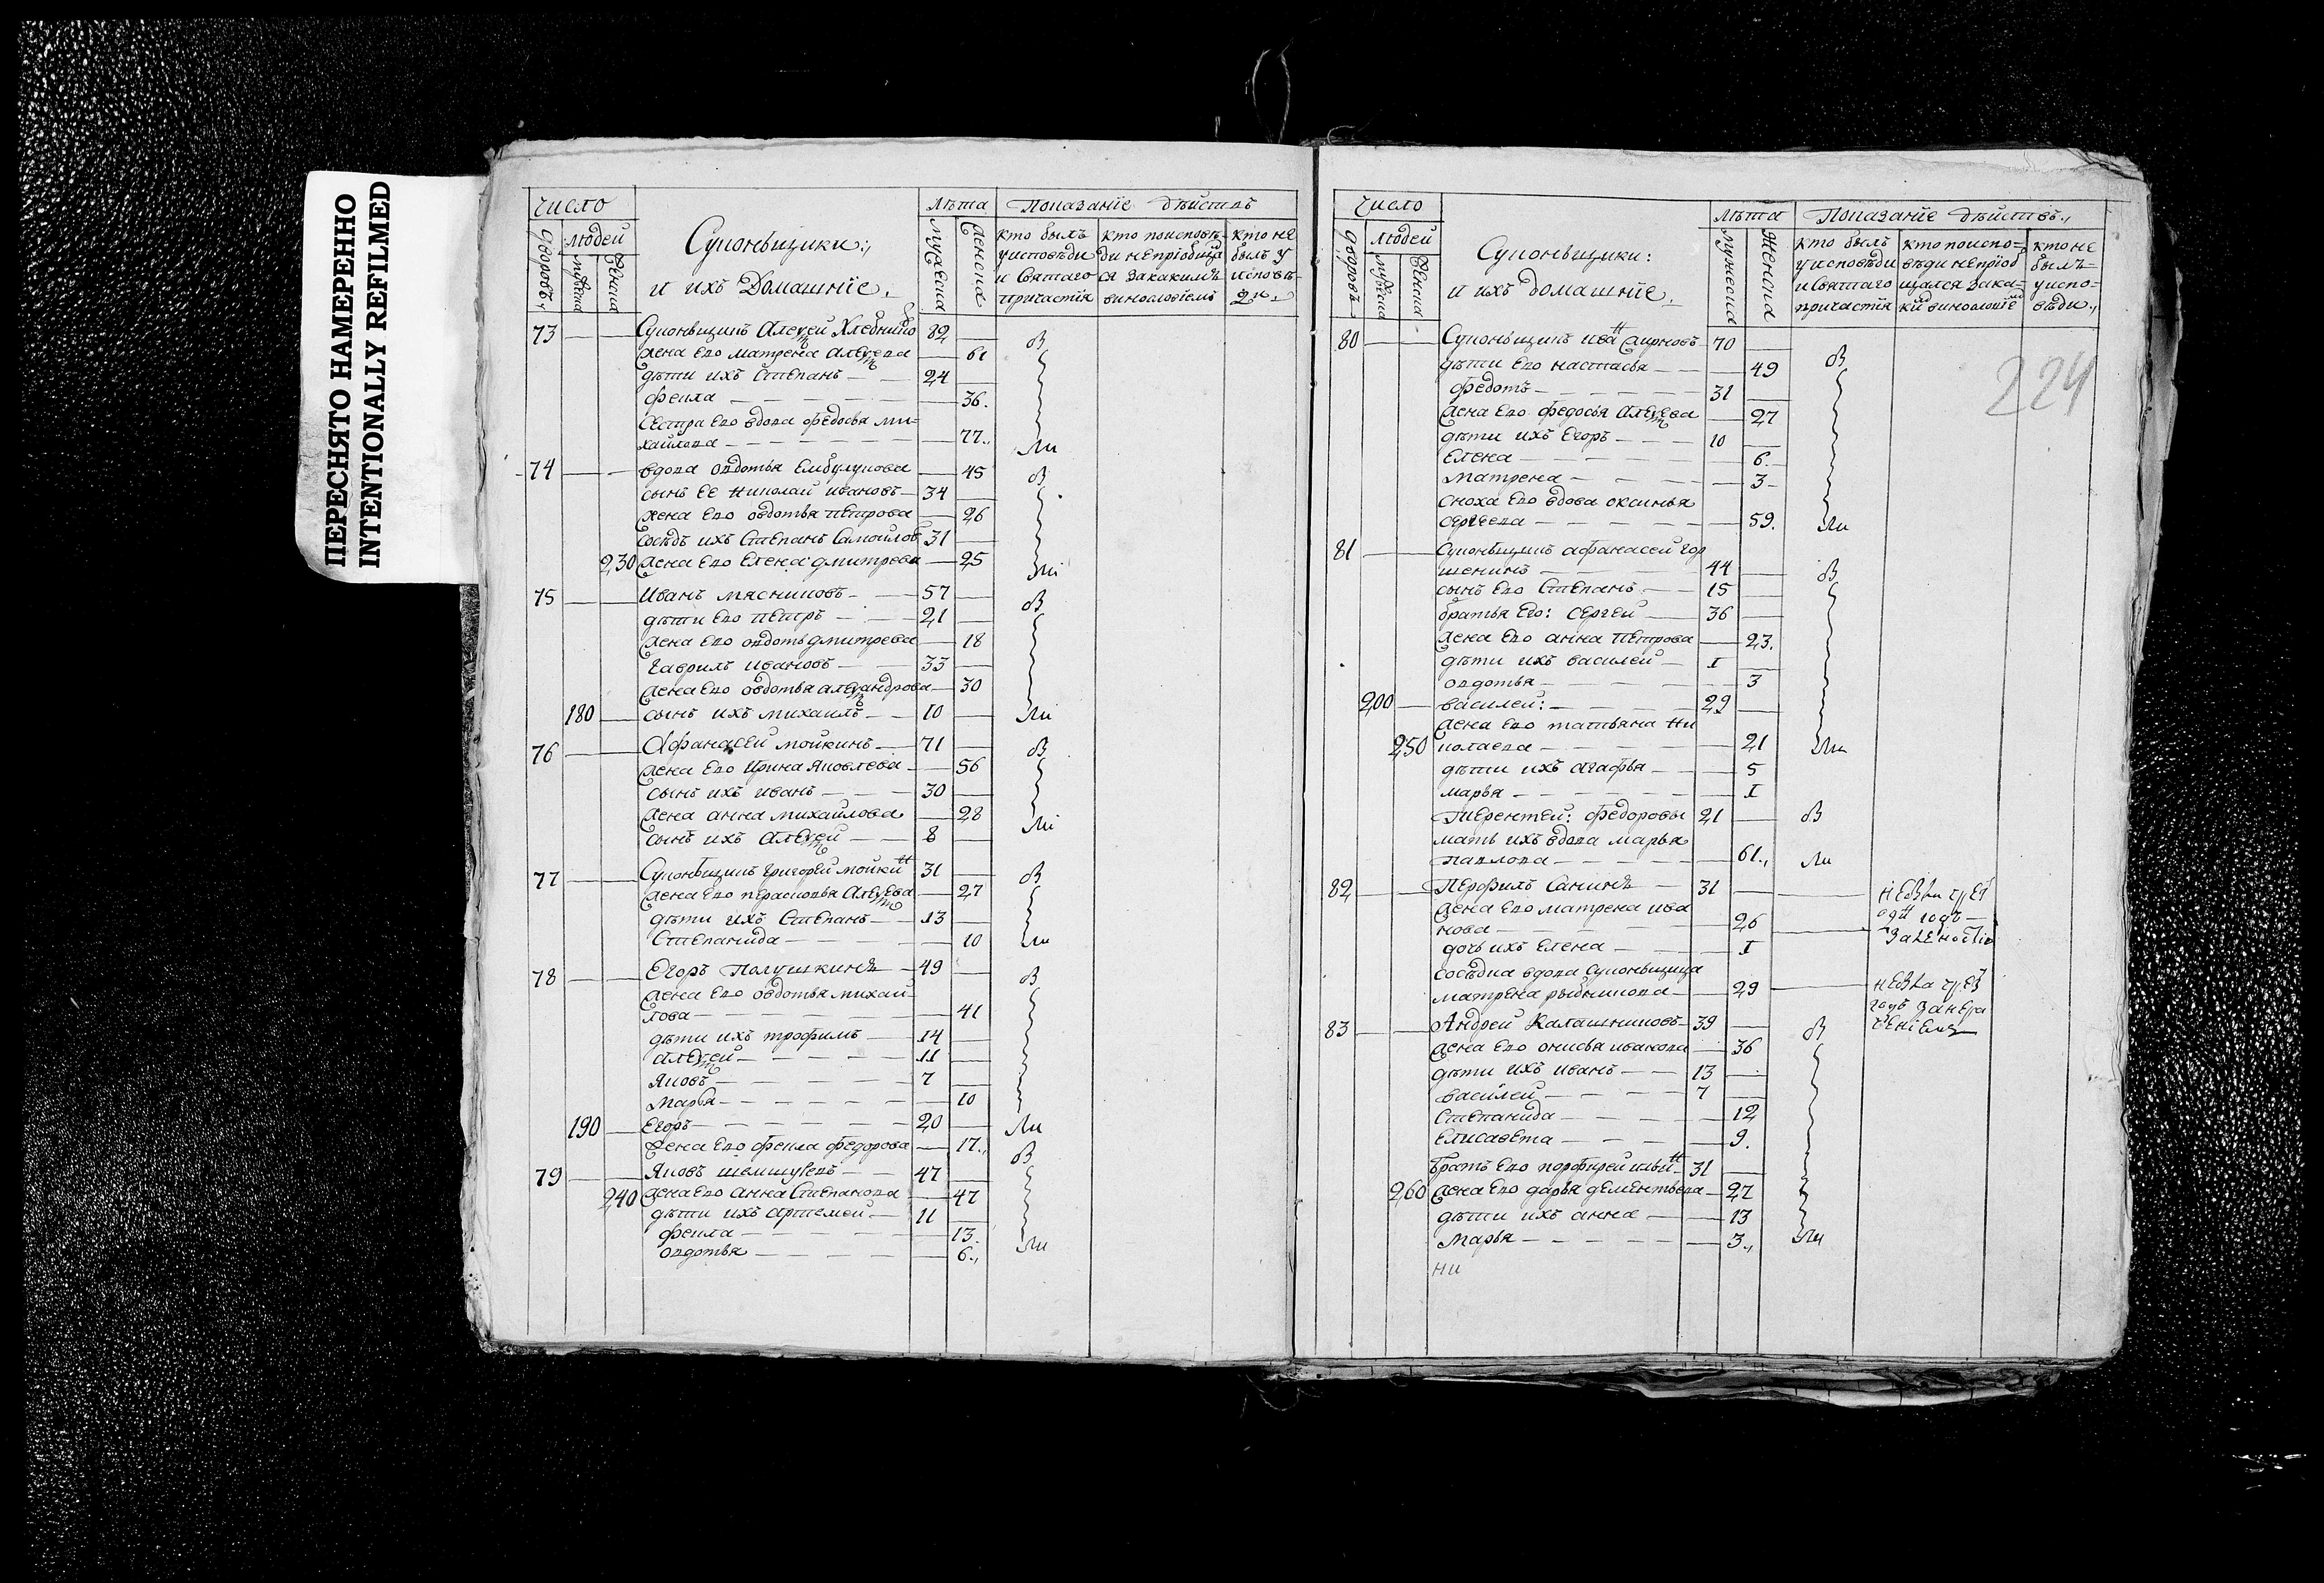 ПЕРЕСНЯТО НАМЕРЕННО
INTENTIONALLY REFILMED
число
людей
дворовъ
мужеска
женска
Суконьщики:,
и ихъ Домашнїе.
лѣта
мужеска
женска
Показанїе дѣиствъ
кто былъ у исповѣди и Святаго причастїя
кто поисповѣ-
ди не прїобща
ся за какимъ
винословїемъ
кто не
былъ у
исповѣ-
ди.,
73 — — Суконьщикъ Алеѯѣй Хлебнико 82 — В
жена Ево матрена алеѯѣева — 61
дѣти ихъ Степанъ — — 24 —
фекла — — — — — 36.
Сестра Ево вдова федосья ми-
хайлова — — — — — 77., Ли
74 — — вдова овдотья — 45 В
сынъ Ее Николай ивановъ — 34 —
жена Ево овдотья петрова — 26
Сосѣдъ ихъ Степанъ Самойлов 31 —
230 жена Ево Елена дмитрева — 25 Ли
75 — — Иванъ мясниковъ — 57 — В
дѣти Ево Петръ — — 21 —
жена Ево овдоть дмитрева — 18
Гаврилъ ивановъ — 33 —
жена Ево овдотья алеѯандрова — 30
180 — сынъ ихъ михаилъ — — 10 — Ли
76 — — Афанасей мойкинъ — 71 — В
жена Ево Ирина Яковлева — 56
Сынъ ихъ иванъ — — 30 —
жена анна михайлова — 28
Сынъ ихъ Алеѯѣй — — 8 — Ли
77 — — Суконьщикъ григорей мойкин 31 — В
жена Ево прасковья Алеѯѣева — 27
дѣти ихъ Степанъ — — 13 —
Степанида — — — — 10 Ли
78 — — Егоръ Полушкинъ — 49 — В
жена Ево овдотья михай-
лова — — — — — 41
дѣти ихъ трофимъ — 14 —
алеѯѣй — — — — 11 —
Яковъ — — — — — 7 —
Марья — — — — — 10
190 — Егоръ — — — — 20 — Ли
жена Ево фекла федорова — 17., В
79 — — Яковъ — — 47 —
240 жена Ево анна Степанова — 47
дѣти ихъ артемей — 11 —
фекла — — — — — 13.
овдотья — — — — — 6., Ли
число
людей
дворовъ
мужеска
женска
Суконьщики:
и ихъ домашнїе.
лѣта
мужеска
женска
Показанїе дѣиствъ.,
кто былъ
у исповѣди
и святаго
причастїя
кто поиспо-
вѣди не прїоб
щался зака-
ки винословїем
кто не
былъ
у испо-
вѣди.,
224
80 — — Суконьщикъ иван Смирновъ 70 — В
дѣти Ево настасья — — — 49
федотъ — — — — 31 —
жена Ево федосья Алеѯѣева — 27
дѣти ихъ Егоръ — — — 10 —
Елена — — — — — 6.
матрена — — — — — 3
сноха Ево вдова оксинья
сергеева — — — — — 59. Ли
81 — — Суконьщикъ афанасей гор
шенинъ — — — 44 — В
сынъ Ево Степанъ — — 15 —
братья Его: Сергей — 36 —
жена Ево анна петрова — 23.
дѣти ихъ василей — I —
овдотья — — — — 3
200 — василей: — — — 29 —
жена Ево татьяна ни
250 колаева — — — — 21 Ли
дѣти ихъ агафья — — 5
марья — — — — — I
Терентей: федоровы 21 — В
мать ихъ вдова марья
павлова — — — — 61., Ли
82 — — Перфилъ Санинъ — 31 —
жена Ево матрена ива
нова — — — — 26
дочь ихъ Елена — — I
сосѣдка вдова Суконьщица
матрена рыбникова — 29
83 — — Андрей Калашниковъ — 39 — В
жена Ево онисья иванова — 36
дѣти ихъ иванъ — — 13 —
василей — — — — 7 —
Степанида — — — — 12
Елисавета — — — — 9.
братъ Ево порфирей ильин — 31 —
260 жена Ево дарья дементьева — 27
дѣти ихъ анна — — 13
Марья — — — — — 3., Ли
ни